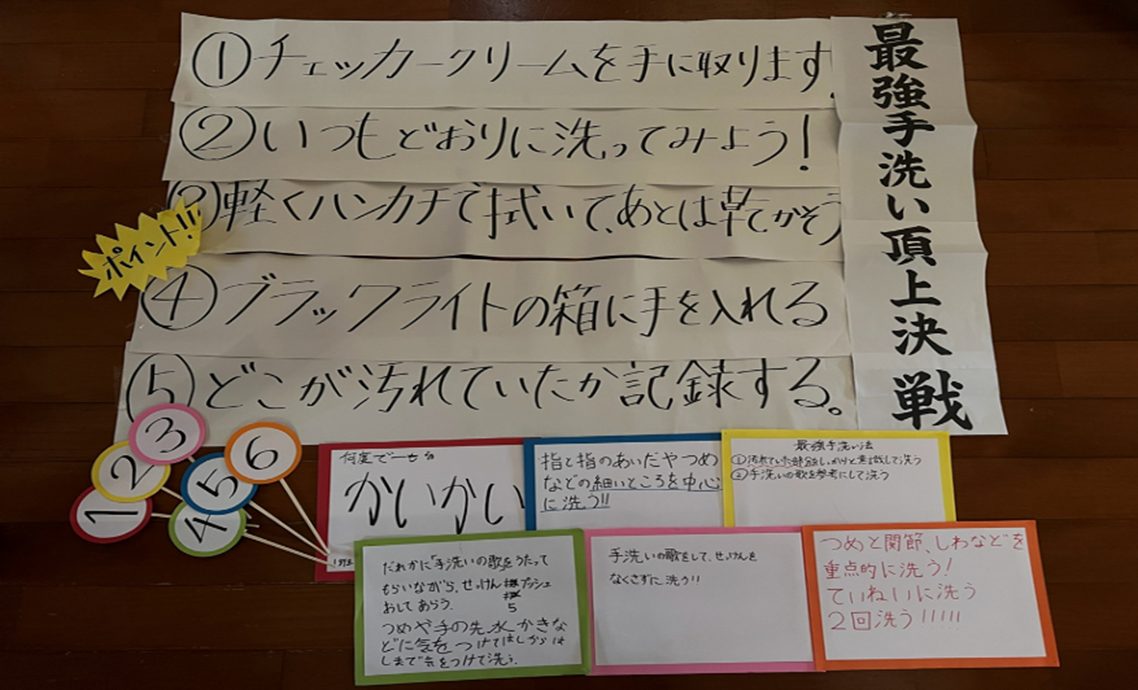 最強手洗い頂上決戦
①チェッカークリームを手に取ります
②いつもどおりに洗ってみよう!
③軽くハンカチで拭いて、あとは乾かそう
ポイント!!
④ブラックライトの箱に手を入れる
⑤どこが汚れていたか記録する。
1
2
3
4
5
6
何度でも
かいかい
指と指のあいだやつめ
などの細いところを中心
に洗う!!
最強手洗い法
①汚れていた部分をしっかりと意識して洗う
②手洗いの歌を参考にして洗う
だれかに「手洗いの歌をうたって
もらいながら、せっけん プッシュ
5
おしてあらう。
つめや手の先、水かきな
どに気をつけてはしからは
しまで気をつけて洗う。
手洗いの歌をして、せっけんを
なくさずに洗う!!
つめと関節、しわなどを
重点的に洗う!
ていねいに洗う
2回洗う!!!!!